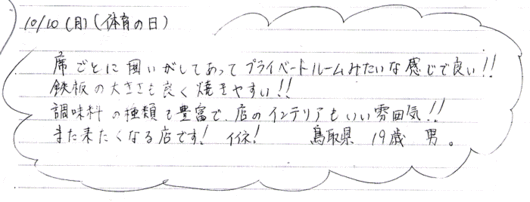 10/10(月)(体育の日)
席ごとに囲いがしてあってプライベートルームみたいな感じで良い!!
鉄板の大きさも良く焼きやすい!!
調味料の種類も豊富で、店のインテリアもいい雰囲気!!
また来たくなる店です! イイネ! 鳥取県 19歳 男。